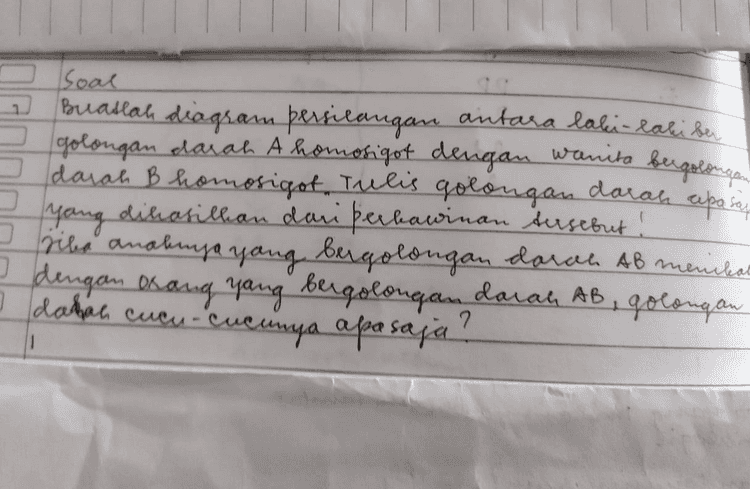 Soal
1 Buatlah diagram persilangan antara laki-laki ber
golongan darah A homosigot dengan wanita bergolongan
darah B homosigot. Tulis golongan darah apa saja
yang dihasilkan dari perkawinan tersebut!
Jika anaknya yang bergolongan darah AB menikah
dengan orang yang bergolongan darah AB, golongan
darah cucu-cucunya apasaja?